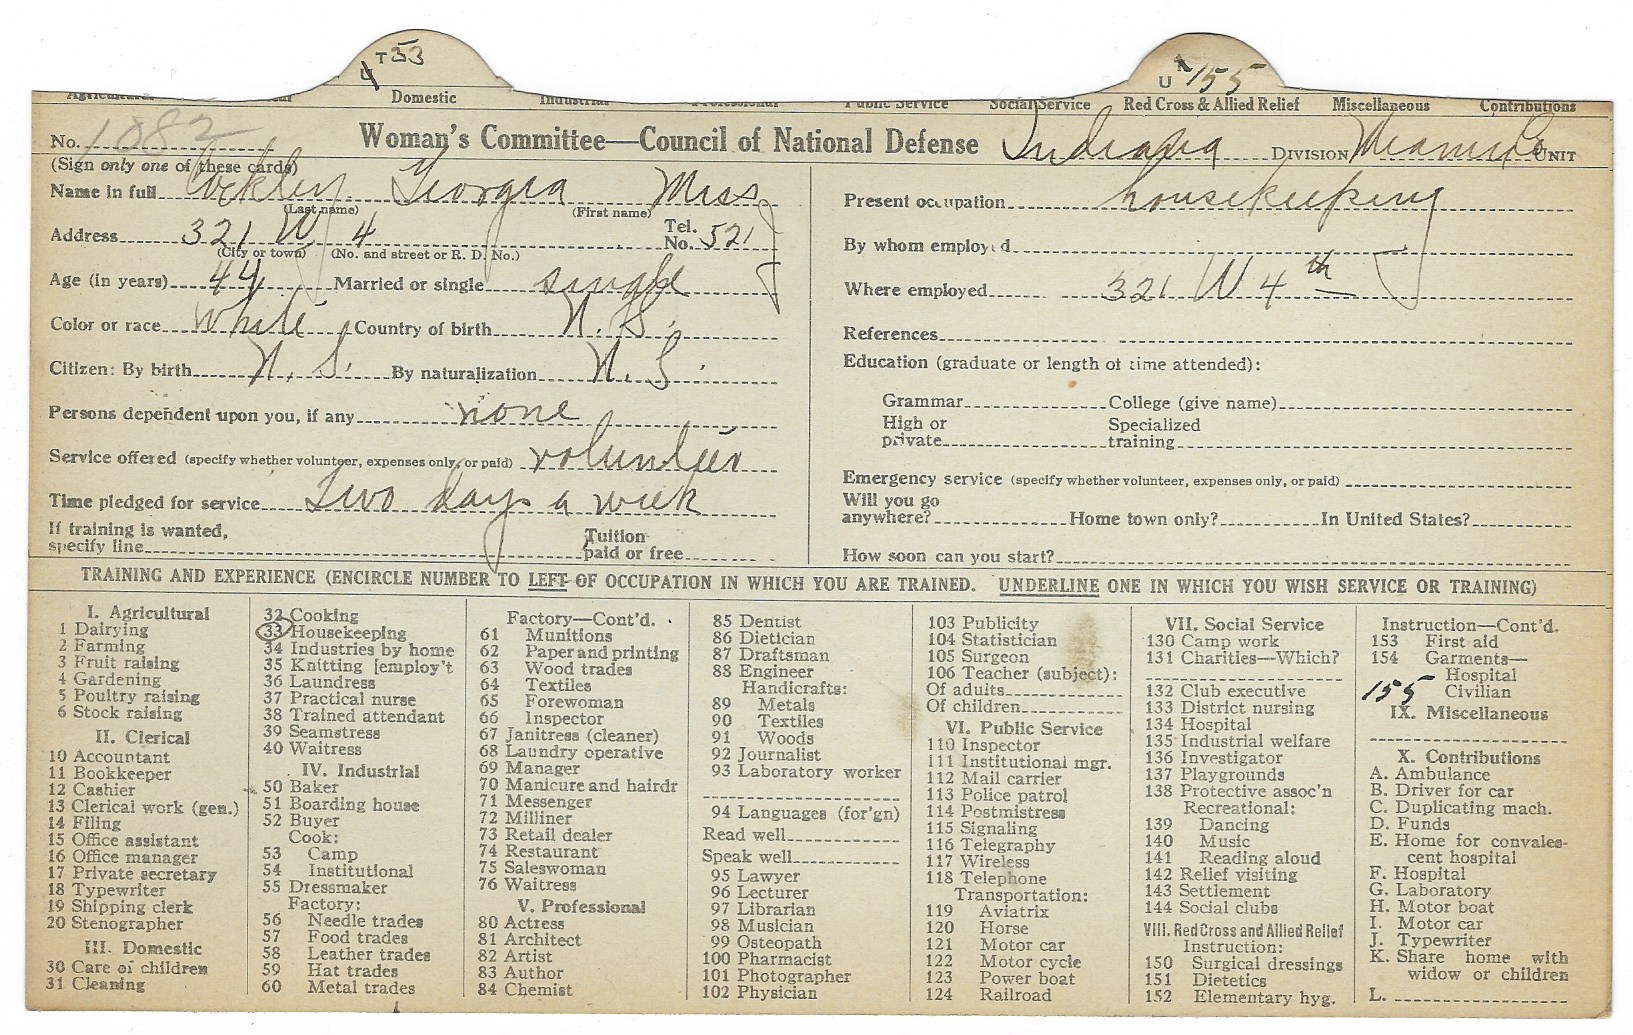 T 33
U 155
Domestic Industrial Professional Public Service Social Service Red Cross & Allied Relief Miscellaneous Contributions
No. 1082 Woman's Committee—Council of National Defense Indiana DIVISION Miami Co UNIT
(Sign only one of these cards)
Name in full Cockley Georgia Miss
(Last name) (First name)
Address 321 W 4 Tel. No. 521
(City or town) (No. and street or R. D. No.)
Age (in years) 44 Married or single single
Color or race White Country of birth N. S.
Citizen: By birth N. S. By naturalization N. S.
Persons dependent upon you, if any none
Service offered (specify whether volunteer, expenses only, or paid) volunteer
Time pledged for service Two days a week
If training is wanted,
specify line
Tuition
paid or free
Present occupation housekeeping
By whom employed
Where employed 321 W 4th
References
Education (graduate or length of time attended):
Grammar College (give name)
High or
private
Specialized
training
Emergency service (specify whether volunteer, expenses only, or paid)
Will you go
anywhere? Home town only? In United States?
How soon can you start?
TRAINING AND EXPERIENCE (ENCIRCLE NUMBER TO LEFT OF OCCUPATION IN WHICH YOU ARE TRAINED. UNDERLINE ONE IN WHICH YOU WISH SERVICE OR TRAINING)
I. Agricultural
1 Dairying
2 Farming
3 Fruit raising
4 Gardening
5 Poultry raising
6 Stock raising
II. Clerical
10 Accountant
11 Bookkeeper
12 Cashier
13 Clerical work (gen.)
14 Filing
15 Office assistant
16 Office manager
17 Private secretary
18 Typewriter
19 Shipping clerk
20 Stenographer
III. Domestic
30 Care of children
31 Cleaning
32 Cooking
33 Housekeeping
34 Industries by home
35 Knitting [employ't
36 Laundress
37 Practical nurse
38 Trained attendant
39 Seamstress
40 Waitress
IV. Industrial
50 Baker
51 Boarding house
52 Buyer
Cook:
53 Camp
54 Institutional
55 Dressmaker
Factory:
56 Needle trades
57 Food trades
58 Leather trades
59 Hat trades
60 Metal trades
Factory—Cont'd.
61 Munitions
62 Paper and printing
63 Wood trades
64 Textiles
65 Forewoman
66 Inspector
67 Janitress (cleaner)
68 Laundry operative
69 Manager
70 Manicure and hairdr
71 Messenger
72 Milliner
73 Retail dealer
74 Restaurant
75 Saleswoman
76 Waitress
V. Professional
80 Actress
81 Architect
82 Artist
83 Author
84 Chemist
85 Dentist
86 Dietician
87 Draftsman
88 Engineer
Handicrafts:
89 Metals
90 Textiles
91 Woods
92 Journalist
93 Laboratory worker
94 Languages (for'gn)
Read well
Speak well
95 Lawyer
96 Lecturer
97 Librarian
98 Musician
99 Osteopath
100 Pharmacist
101 Photographer
102 Physician
103 Publicity
104 Statistician
105 Surgeon
106 Teacher (subject):
Of adults
Of children
VI. Public Service
110 Inspector
111 Institutional mgr.
112 Mail carrier
113 Police patrol
114 Postmistress
115 Signaling
116 Telegraphy
117 Wireless
118 Telephone
Transportation:
119 Aviatrix
120 Horse
121 Motor car
122 Motor cycle
123 Power boat
124 Railroad
VII. Social Service
130 Camp work
131 Charities—Which?
132 Club executive
133 District nursing
134 Hospital
135 Industrial welfare
136 Investigator
137 Playgrounds
138 Protective assoc'n
Recreational:
139 Dancing
140 Music
141 Reading aloud
142 Relief visiting
143 Settlement
144 Social clubs
VIII. Red Cross and Allied Relief
Instruction:
150 Surgical dressings
151 Dietetics
152 Elementary hyg.
Instruction—Cont'd.
153 First aid
154 Garments—
Hospital
155 Civilian
IX. Miscellaneous
X. Contributions
A. Ambulance
B. Driver for car
C. Duplicating mach.
D. Funds
E. Home for convales-
cent hospital
F. Hospital
G. Laboratory
H. Motor boat
I. Motor car
J. Typewriter
K. Share home with
widow or children
L.